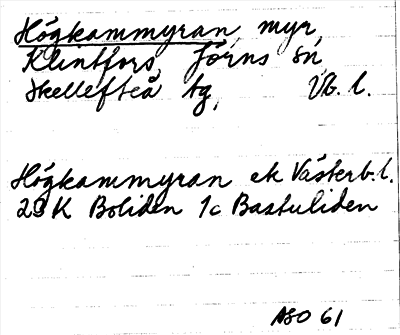 Högkammyran, myr,
Klintfors, Jörns sn,
Skellefteå tg, Vb. l.
Högkammyran ek Västerb. l.
23 K Boliden 1c Bastuliden
ASO 61